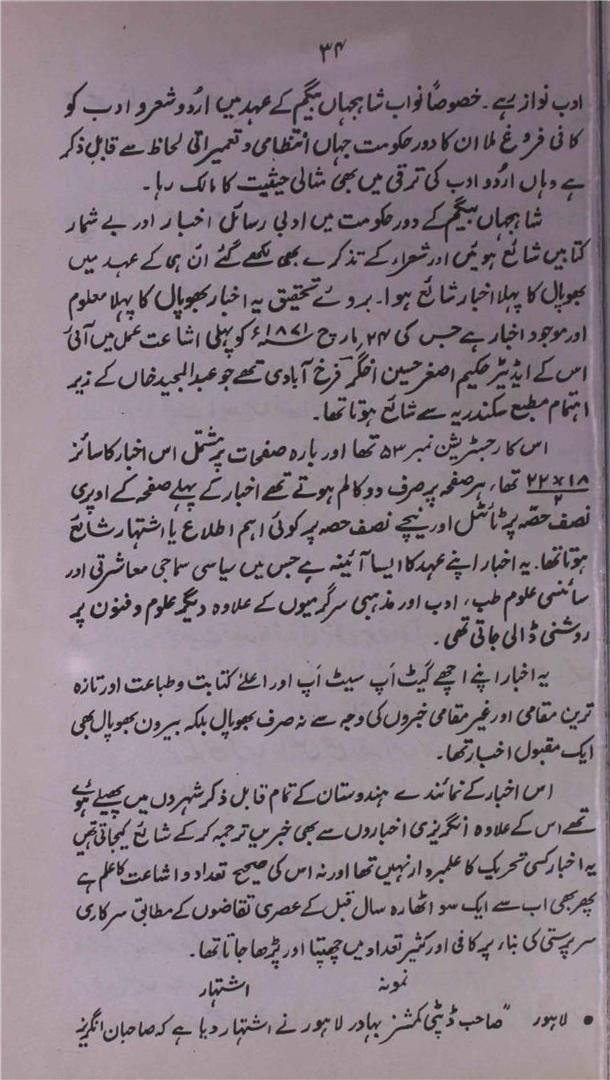 ۳۴
ادب نواز رہے۔ خصوصاً نواب شاہجہاں بیگم کے عہد میں اردو شعر و ادب کو
کافی فروغ ملا ان کا دور حکومت جہاں انتظامی و تعمیراتی لحاظ سے قابل ذکر
ہے وہاں اردو ادب کی ترقی میں بھی مثالی حیثیت کا مالک رہا۔
شاہجہاں بیگم کے دور حکومت میں ادبی رسائل اخبار اور بے شمار
کتابیں شائع ہوئیں اور شعراء کے تذکرے بھی لکھے گئے ان ہی کے عہد میں
بھوپال کا پہلا اخبار شائع ہوا۔ بروئے تحقیق یہ اخبار بھوپال کا پہلا معلوم
اور موجود اخبار ہے جس کی ۲۴ مارچ ۱۸۷۱ء کو پہلی اشاعت عمل میں آئی
اس کے ایڈیٹر حکیم اصغر حسین اخگر فرخ آبادی تھے جو عبدالمجید خاں کے زیر
اہتمام مطبع سکندریہ سے شائع ہوتا تھا۔
اس کا رجسٹریشن نمبر ۵۳ تھا اور بارہ صفحات پر مشتمل اس اخبار کا سائز
۲۲×۱۸/۲ تھا، ہر صفحہ پر صرف دو کالم ہوتے تھے اخبار کے پہلے صفحہ کے اوپری
نصف حصہ پر ٹائٹل اور نیچے نصف حصہ پر کوئی اہم اطلاع یا اشتہار شائع
ہوتا تھا۔ یہ اخبار اپنے عہد کا ایسا آئینہ ہے جس میں سیاسی سماجی معاشرتی اور
سائنسی علوم طب، ادب اور مذہبی سرگرمیوں کے علاوہ دیگر علوم و فنون پر
روشنی ڈالی جاتی تھی۔
یہ اخبار اپنے اچھے گیٹ اَپ سیٹ اَپ اور اعلےٰ کتابت و طباعت اور تازہ
ترین مقامی اور غیر مقامی خبروں کی وجہ سے نہ صرف بھوپال بلکہ بیرون بھوپال بھی
ایک مقبول اخبار تھا۔
اس اخبار کے نمائندے ہندوستان کے تمام قابل ذکر شہردوں میں پھیلے ہوئے
تھے اس کے علاوہ انگریزی اخباروں سے بھی خبریں ترجمہ کر کے شائع کیجاتی تھیں
یہ اخبار کسی تحریک کا علمبردار نہیں تھا اور نہ اس کی صحیح تعداد و اشاعت کا علم ہے
پھر بھی اب سے ایک سو اٹھارہ سال قبل کے عصری تقاضوں کے مطابق سرکاری
سرپرستی کی بناء پر کافی اور کثیر تعداد میں چھپتا اور پڑھا جاتا تھا۔
نمونہ اشتہار
● لاہور "صاحب ڈپٹی کمشنر بہادر لاہور نے اشتہار دیا ہے کہ صاحبان انگریز